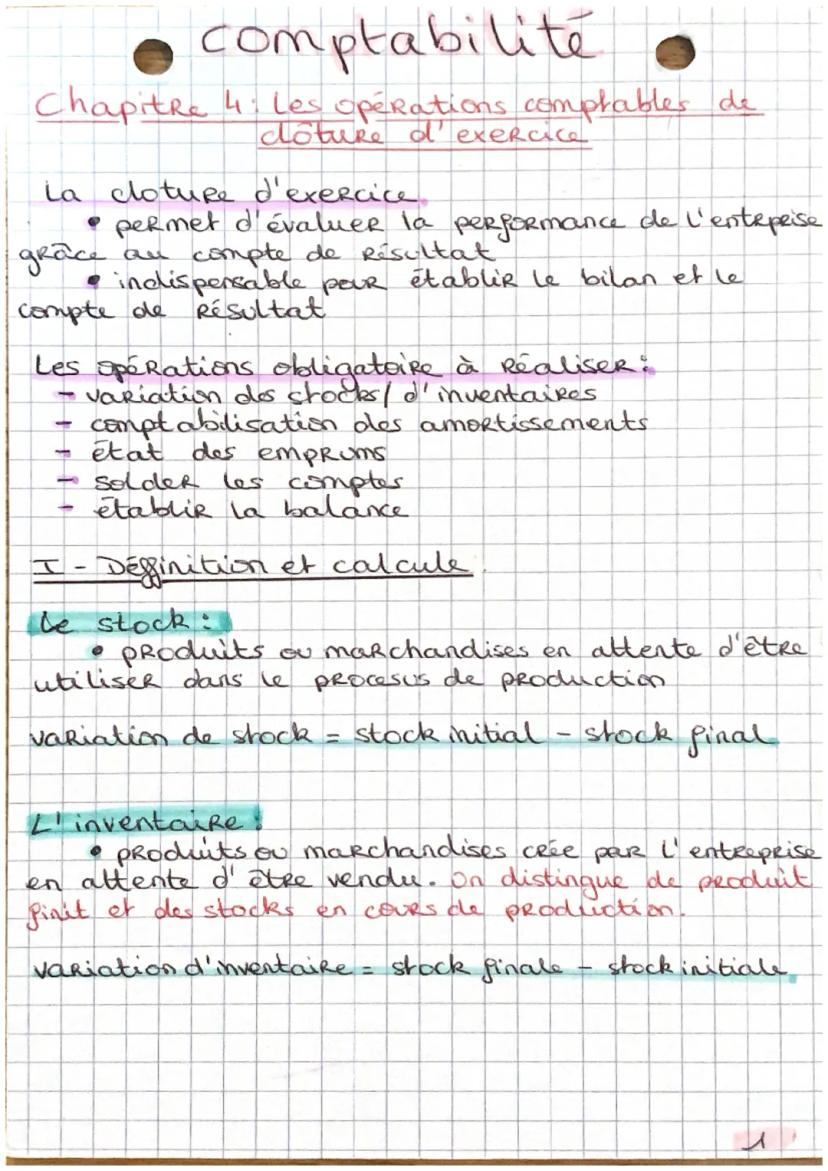 comptabilité
Chapitre 4 : Les opérations comptables de
clôture d'exercice
La cloture d'exercice
• permet d'évaluer la performance de l'entepise
grâce au compte de résultat
• indispensable pour établir le bilan et le
compte de résultat
Les opérations obligatoire à réaliser :
- variation des stocks / d'inventaires
- comptabilisation des amortissements
- état des empruns
- solder les comptes
- établir la balance
I - Déffinition et calcule
Le stock :
• produits ou marchandises en attente d'être
utiliser dans le procesus de production
variation de stock = stock initial - stock final
L'inventaire :
• produits ou marchandises crée par l'entreprise
en attente d'être vendu. On distingue de produit
finit et des stocks en cours de production.
variation d'inventaire = stock finale - stock initiale
1